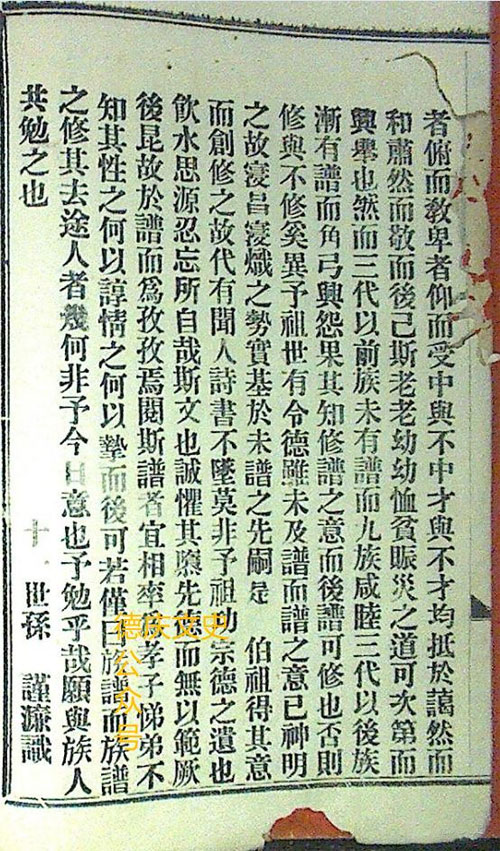 者俯而教卑者仰而受中與不中才與不才均抵於藹然而
和肅然而敬而後已斯老老幼幼恤貧賑災之道可次第而
興舉也然而三代以前族未有譜而九族咸睦三代以後族
漸有譜而角弓興怨果其知修譜之意而後譜可修也否則
修與不修奚異予祖世有令德雖未及譜而譜之意已神明
之故寖昌寖熾之勢實基於未譜之先嗣是 伯祖得其意
而創修之故代有聞人詩書不墜莫非予祖功宗德之遺也
飲水思源忍忘所自哉斯文也誠懼其隳先德而無以範厥
後昆故於譜而為孜孜焉閱斯譜者宜相率為孝子悌弟不
知其性之何以諄情之何以摯而後可若僅曰族譜而族譜
之修其去途人者幾何非予今日意也予勉乎哉願與族人
共勉之也 十 世孫 謹濂識
德庆文史
公众号